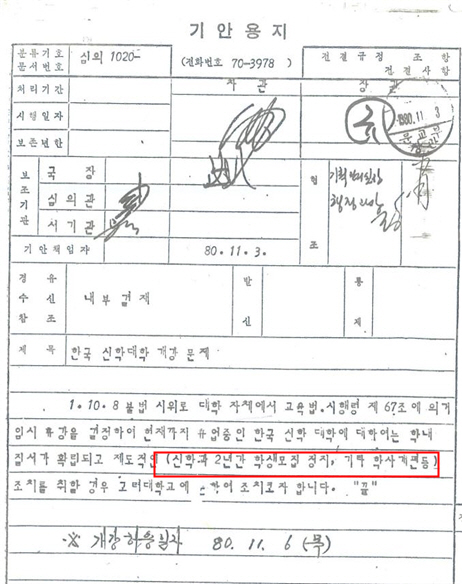 기안용지
분류기호 문서번호 심의 1020- (전화번호 70-3978) 전결규정 조 항 전결사항
처리기간 차관 장관
시행일자 1980.11 3
보존년한
보조기관 국장 협조
심의관
서기관
기안책임자 80.11.3.
경유 수신 참조 내부결재 발신 통제
제목 한국 신학대학 개강 문제
1. 10.8 불법 시위로 대학 자체에서 교육법.시행령 제 67조에 의거
임시 휴강을 결정하여 현재까지 휴업중인 한국 신학 대학에 대하여는 학내
질서가 확립되고 제도적인 (신학과 2년간 학생모집 정지, 기타 학사개편등)
조치를 취할 경우 대학교에 하여 조치코자 합니다. "끝"
※ 개강허용일자 80. 11. 6 (목)